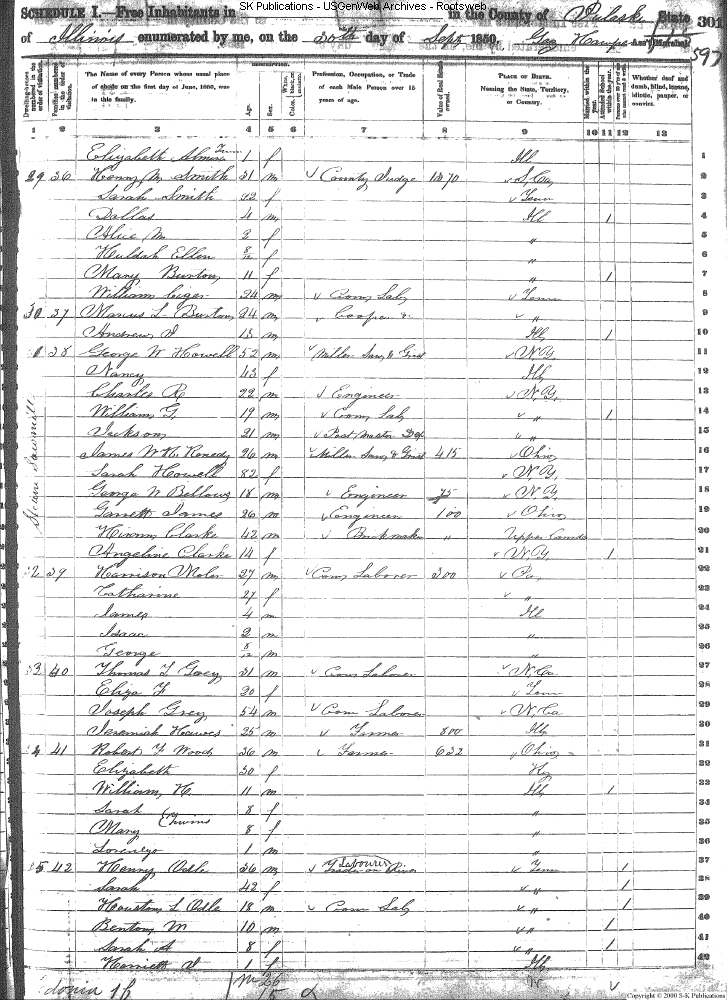 SK Publications - USGenWeb Archives - Rootsweb
SCHEDULE I.—Free Inhabitants in in the County of Pulaski State 301
of Illinois enumerated by me, on the 30th day of Sept 1850. Ass't Marshal. 597
Dwelling-houses numbered in the order of visitation.
Families numbered in the order of visitation.
The Name of every Person whose usual place of abode on the first day of June, 1850, was in this family.
DESCRIPTION.
Age.
Sex.
White, Color, black, or mulatto.
Profession, Occupation, or Trade of each Male Person over 15 years of age.
Value of Real Estate owned.
PLACE OF BIRTH. Naming the State, Territory, or Country.
Married within the year.
Attended School within the year.
Persons over 20 y'rs of age who cannot read & write.
Whether deaf and dumb, blind, insane, idiotic, pauper, or convict.
1 2 3 4 5 6 7 8 9 10 11 12 13
Elizabeth 1 f Ill 1
29 36 Henry M Smith 31 m County Judge S. Ca. 2
Sarah Smith f Tenn 3
Dallas 4 m Ill 1 4
Alice M 2 f " 5
Huldah Ellen 8/12 f " 6
Mary Burton 11 f " 1 7
William 24 m Com Lab Tenn 8
30 37 Marcus L Burton 24 m Cooper " 9
Andrew J 13 m Ill 1 10
38 George W Howell 52 m Miller Saw & Grist N.Y. 11
Nancy 43 f Ill 12
Charles R 22 m Engineer N.Y. 13
William G. 19 m Com Lab " 1 14
Jackson 21 m Post Master Dep " 15
James W H 26 m Miller Saw & Grist 415 Ohio 16
Sarah Howell 82 f N.Y. 17
George W Bellows 18 m Engineer 75 N.Y. 18
Garrett James 26 m Engineer 100 Ohio 19
Hiram Clarke 42 m Brickmaker " Upper Canada 20
Angeline Clarke 14 f N.Y. 1 21
Steam Sawmill
32 39 Harrison Moler 27 m Com Laborer 300 Pa 22
Catharine 27 f " 23
James 4 m Ill 24
Isaac 2 m " 25
George 8/12 m " 26
33 40 Thomas L 31 m Com Laborer N. Ca. 27
Eliza F 20 f Tenn 28
Joseph Grey 54 m Com Laborer N. Ca 29
Jeremiah Hawes 25 m Farmer 800 Ill 30
34 41 Robert F Wood 36 m Farmer 632 Ohio 31
Elizabeth 30 f Ky 32
William, H. 11 m Ill 1 33
Sarah 8 f " 34
Mary (Twins 8 f " 35
Lorenzo 1 m " 36
35 42 Henry Odle 36 m Labourer on River Tenn 1 37
Sarah 42 f " 1 38
Houston L Odle 18 m Com Lab " 1 39
Benton M 10 m " 1 40
Sarah A 8 f " 1 41
Harriett J 1 f Ill 42
Copyright © 2000 S-K Publications